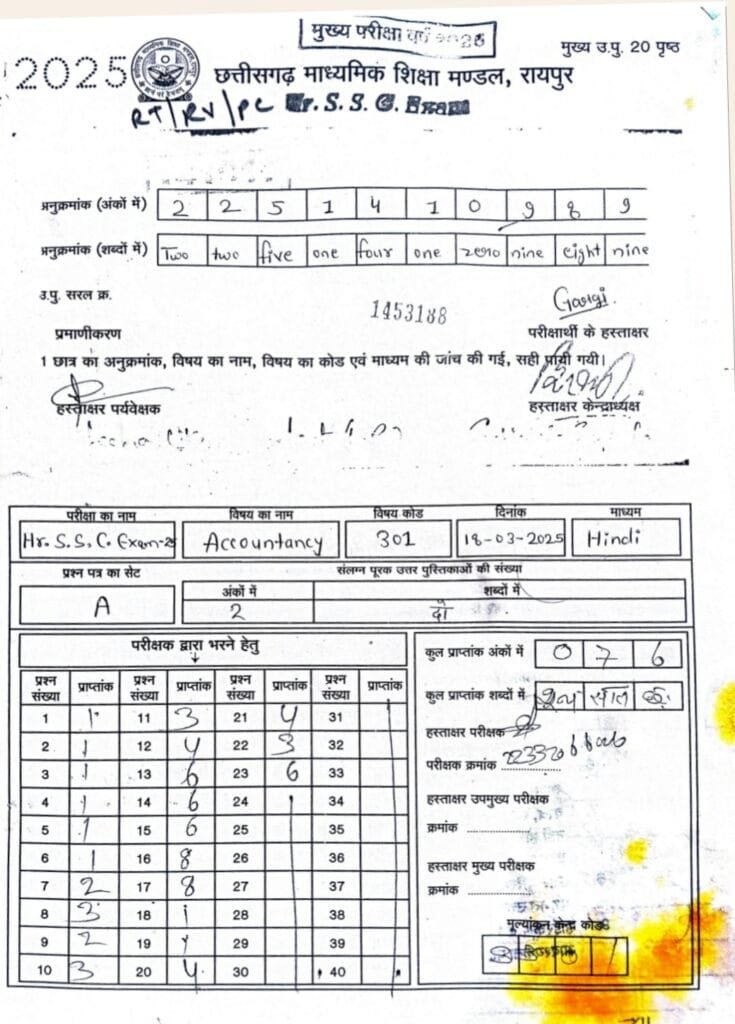 मुख्य परीक्षा वर्ष 2025
मुख्य उ.पु. 20 पृष्ठ
2025
छत्तीसगढ़ माध्यमिक शिक्षा मण्डल, रायपुर
RT/RV/PC Hr. S. S. C. Exam
अनुक्रमांक (अंकों में) 2 2 5 1 4 1 0 9 8 9
अनुक्रमांक (शब्दों में) Two two five one four one zero nine eight nine
उ.पु. सरल क्र. 1453188
Gargi.
प्रमाणीकरण परीक्षार्थी के हस्ताक्षर
1 छात्र का अनुक्रमांक, विषय का नाम, विषय का कोड एवं माध्यम की जांच की गई, सही पायी गयी।
हस्ताक्षर पर्यवेक्षक हस्ताक्षर केन्द्राध्यक्ष
परीक्षा का नाम विषय का नाम विषय कोड दिनांक माध्यम
Hr. S. S. C. Exam-25 Accountancy 301 18-03-2025 Hindi
प्रश्न पत्र का सेट संलग्न पूरक उत्तर पुस्तिकाओं की संख्या
अंकों में शब्दों में
A 2 दो
परीक्षक द्वारा भरने हेतु
प्रश्न संख्या प्राप्तांक प्रश्न संख्या प्राप्तांक प्रश्न संख्या प्राप्तांक प्रश्न संख्या प्राप्तांक
1 1 11 3 21 4 31
2 1 12 4 22 3 32
3 1 13 6 23 6 33
4 1 14 6 24 34
5 1 15 6 25 35
6 1 16 8 26 36
7 2 17 8 27 37
8 3 18 1 28 38
9 2 19 1 29 39
10 3 20 4 30 40
कुल प्राप्तांक अंकों में 0 7 6
कुल प्राप्तांक शब्दों में शून्य सात छः
हस्ताक्षर परीक्षक
परीक्षक क्रमांक
हस्ताक्षर उपमुख्य परीक्षक
क्रमांक
हस्ताक्षर मुख्य परीक्षक
क्रमांक
मूल्यांकन केन्द्र कोड